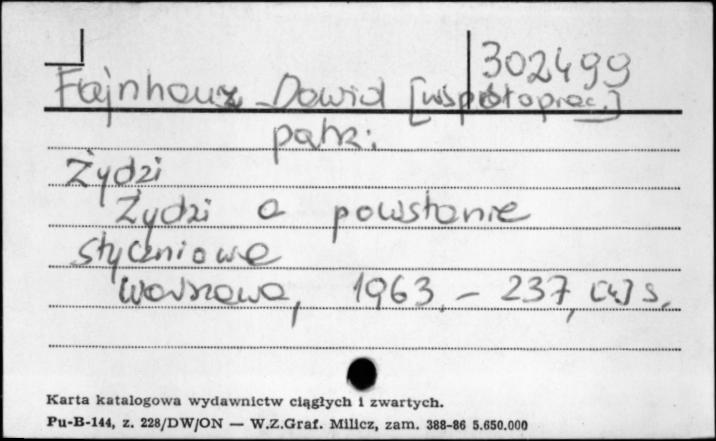 302499
Fajnhauz Dawid [współoprac.]
patrz:
Żydzi
Żydzi a powstanie
styczniowe
Warszawa, 1963. – 237, [1] s.
Karta katalogowa wydawnictw ciągłych i zwartych.
Pu-B-144, z. 228/DW/ON — W.Z.Graf. Milicz, zam. 388-86 5.650.000